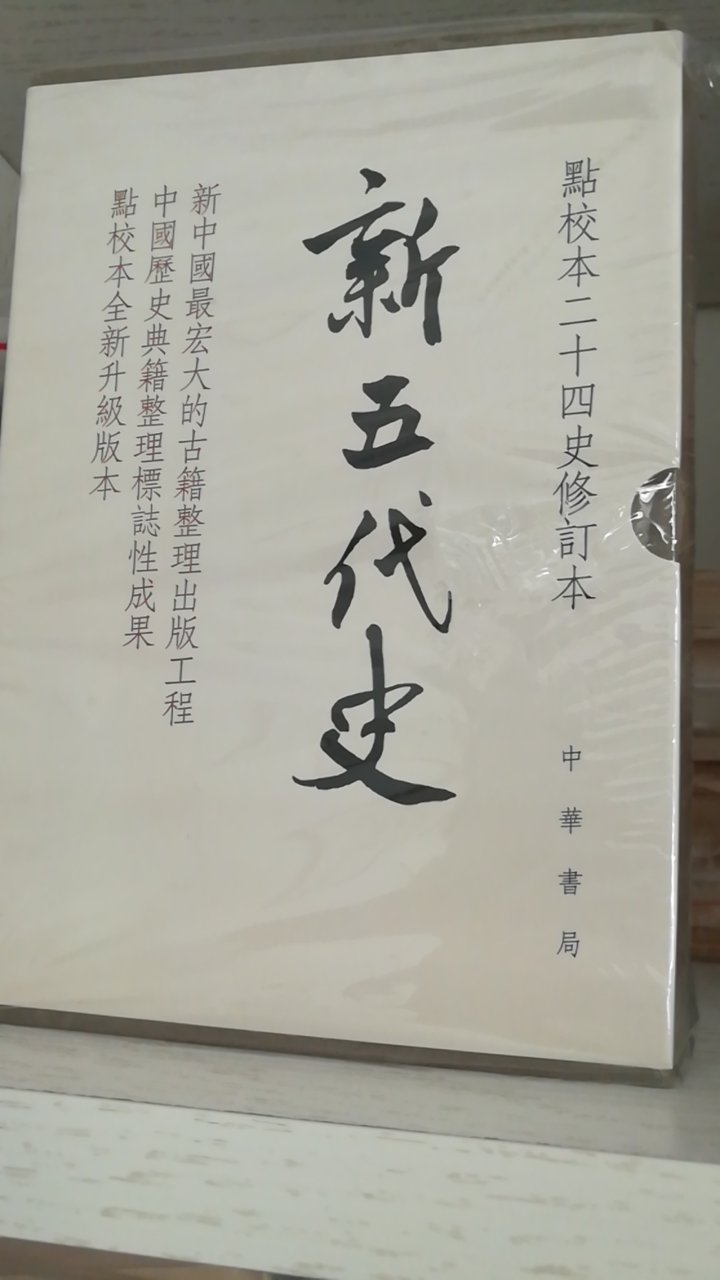 點校本二十四史修訂本
中華書局
新五代史
新中國最宏大的古籍整理出版工程
中國歷史典籍整理標誌性成果
點校本全新升級版本